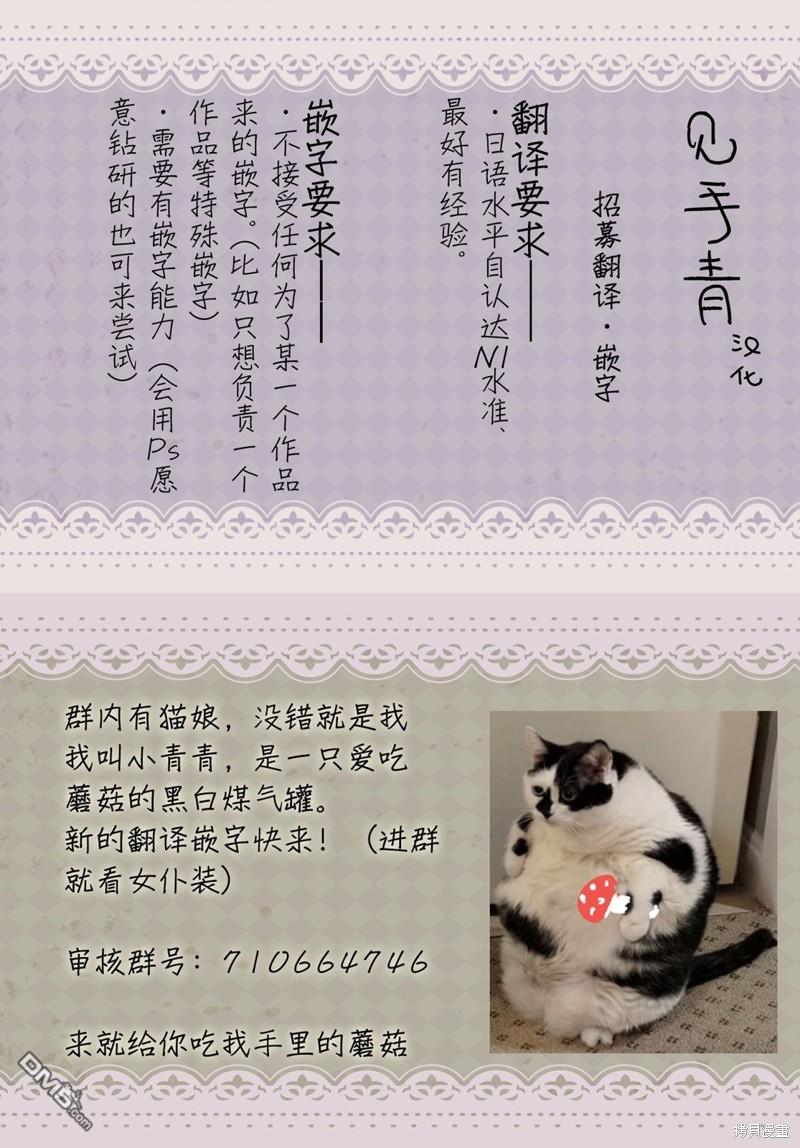 见手青
汉化
招募翻译·嵌字
翻译要求——
·日语水平自认达N1水准、
最好有经验。
嵌字要求——
·不接受任何为了某一个作品
来的嵌字。（比如只想负责一个
作品等特殊嵌字）
·需要有嵌字能力（会用Ps愿
意钻研的也可来尝试）
群内有猫娘，没错就是我
我叫小青青，是一只爱吃
蘑菇的黑白煤气罐。
新的翻译嵌字快来！（进群
就看女仆装）
审核群号：710664746
来就给你吃我手里的蘑菇
DM5.com
拷貝漫畫